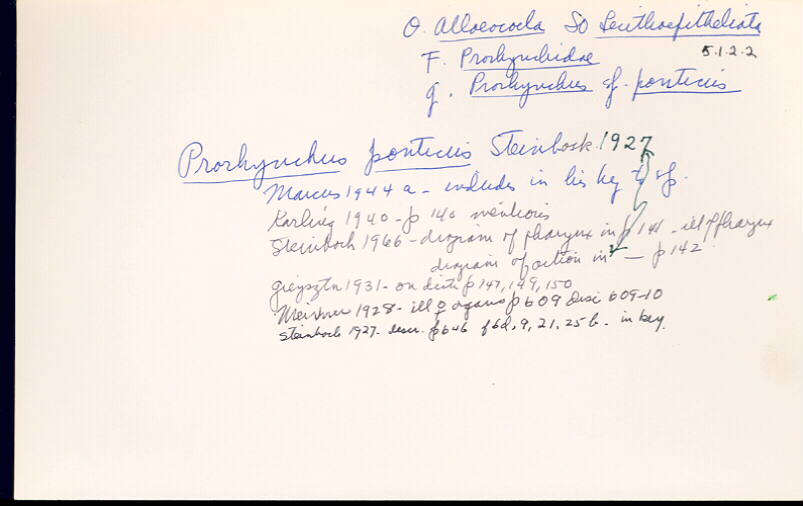 O. Alloeocoela SO Lecithoepitheliata
5.1.2.2
F. Prorhynchidae
g. Prorhynchus sp. ponticus
Prorhynchus ponticus Steinbock 1927
Marcus 1944 a - includes in his key to sp.
Karling 1940 - p 140 mentions
Steinboch 1966 - diagram of pharynx in p 141 - ill of pharynx
diagram of action in - p 142
gieysztn 1931 - on distr p 147, 149, 150
Meixner 1928 - ill ♀ organs p 609 Disc 609-10
Steinboch 1927 - descr. p 646 f 6d, 9, 21, 25 b. - in key